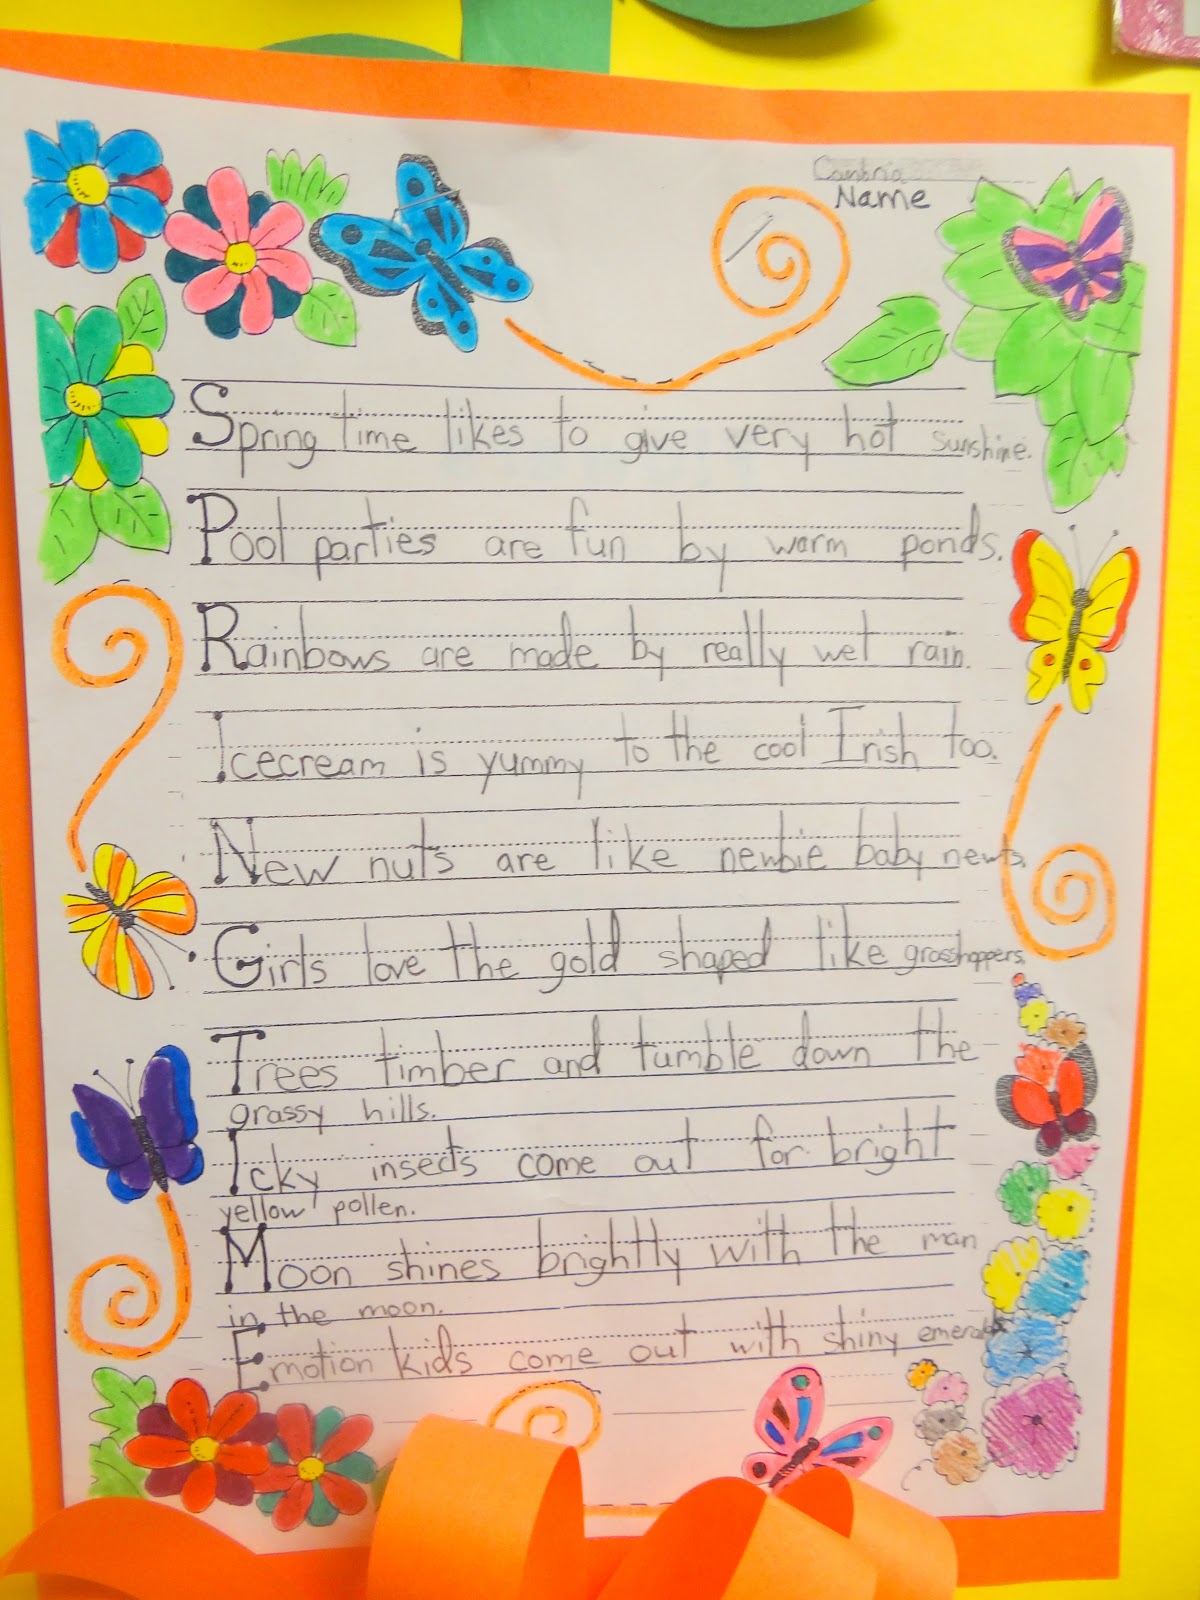 Cambria
Name
Spring time likes to give very hot sunshine.
Pool parties are fun by warm ponds.
Rainbows are made by really wet rain.
Icecream is yummy to the cool Irish too.
New nuts are like newbie baby newts.
Girls love the gold shaped like grasshoppers.
Trees timber and tumble down the
grassy hills.
Icky insects come out for bright
yellow pollen.
Moon shines brightly with the man
in the moon.
Emotion kids come out with shiny emeralds